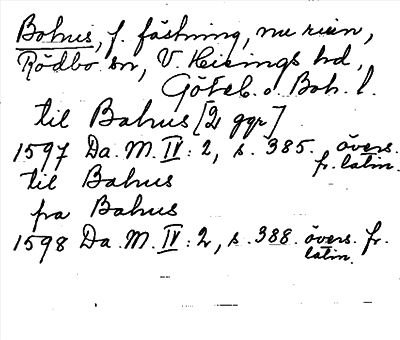 Bohus, f. fästning, nu ruin,
Rödbo sn, V. Hisings hd,
Göteb. o. Boh. l.
til Bahus [2 ggr]
1597 Da. M. IV: 2, s. 385. övers. fr. latin.
til Bahus
fra Bahus
1598 Da. M. IV: 2, s. 388. övers. fr. latin.